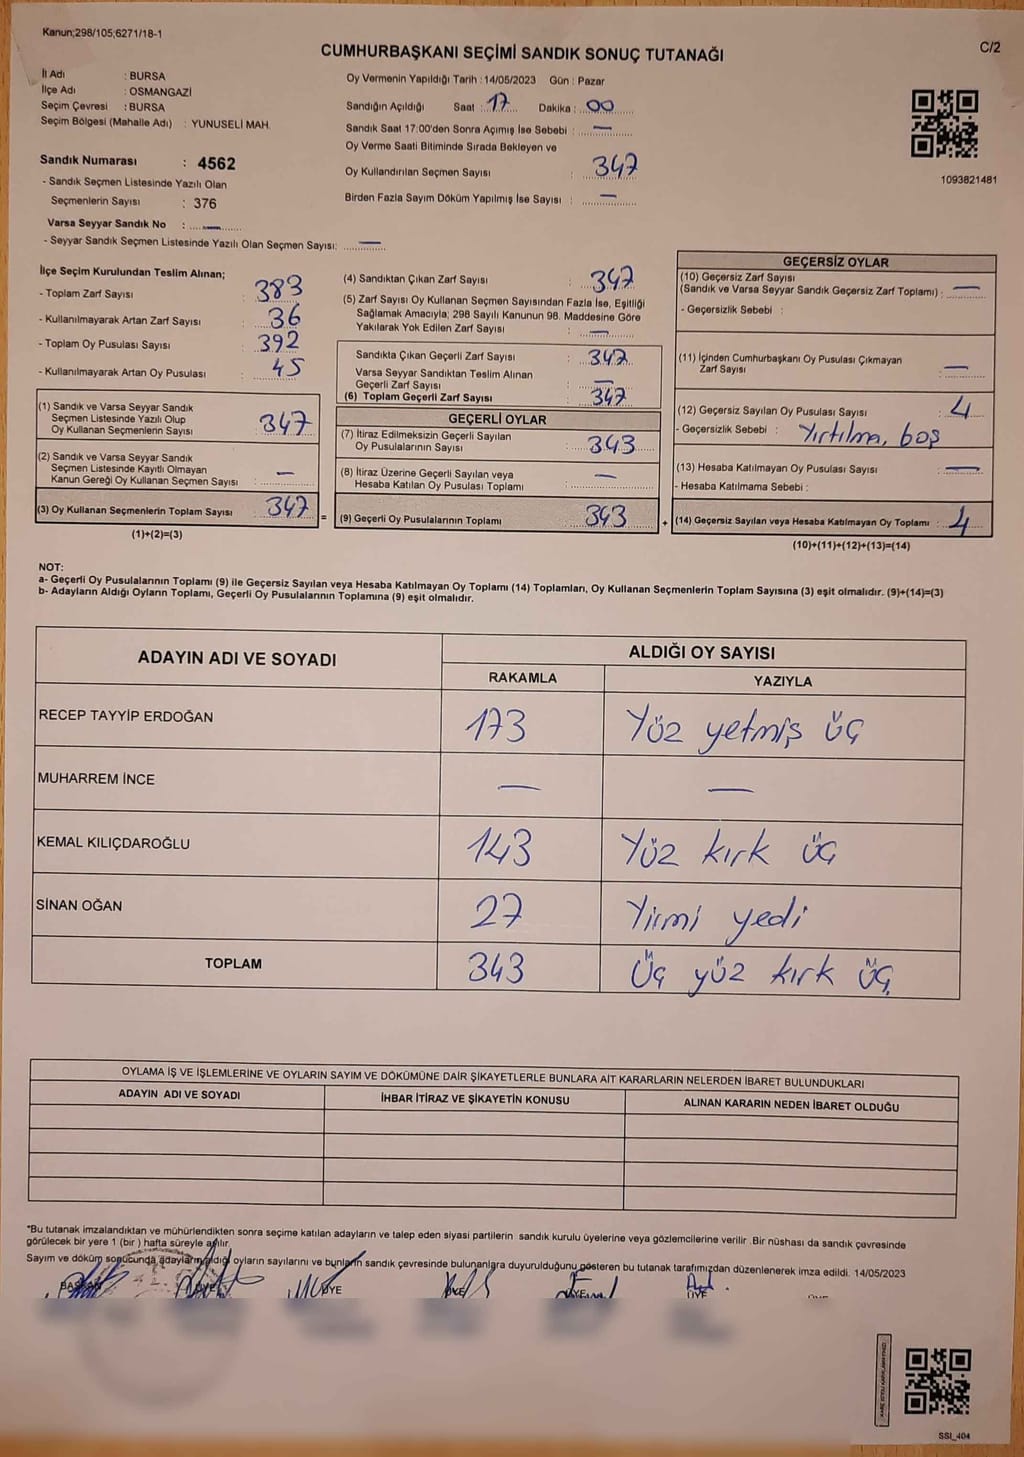 Kanun;298/105;6271/18-1
C/2
CUMHURBAŞKANI SEÇİMİ SANDIK SONUÇ TUTANAĞI
İl Adı : BURSA
İlçe Adı : OSMANGAZİ
Seçim Çevresi : BURSA
Seçim Bölgesi (Mahalle Adı) : YUNUSELİ MAH.
Sandık Numarası : 4562
- Sandık Seçmen Listesinde Yazılı Olan
Seçmenlerin Sayısı : 376
Varsa Seyyar Sandık No : —
- Seyyar Sandık Seçmen Listesinde Yazılı Olan Seçmen Sayısı: —
Oy Vermenin Yapıldığı Tarih : 14/05/2023 Gün : Pazar
Sandığın Açıldığı Saat : 17 Dakika : 00
Sandık Saat 17:00'den Sonra Açımış İse Sebebi : —
Oy Verme Saati Bitiminde Sırada Bekleyen ve
Oy Kullandırılan Seçmen Sayısı : 347
Birden Fazla Sayım Döküm Yapılmış İse Sayısı : —
1093821481
İlçe Seçim Kurulundan Teslim Alınan;
- Toplam Zarf Sayısı : 383
- Kullanılmayarak Artan Zarf Sayısı : 36
- Toplam Oy Pusulası Sayısı : 392
- Kullanılmayarak Artan Oy Pusulası : 45
(1) Sandık ve Varsa Seyyar Sandık
Seçmen Listesinde Yazılı Olup
Oy Kullanan Seçmenlerin Sayısı : 347
(2) Sandık ve Varsa Seyyar Sandık
Seçmen Listesinde Kayıtlı Olmayan
Kanun Gereği Oy Kullanan Seçmen Sayısı : —
(3) Oy Kullanan Seçmenlerin Toplam Sayısı : 347
(1)+(2)=(3)
(4) Sandıktan Çıkan Zarf Sayısı : 347
(5) Zarf Sayısı Oy Kullanan Seçmen Sayısından Fazla İse, Eşitliği
Sağlamak Amacıyla; 298 Sayılı Kanunun 98. Maddesine Göre
Yakılarak Yok Edilen Zarf Sayısı : —
Sandıkta Çıkan Geçerli Zarf Sayısı : 347
Varsa Seyyar Sandıktan Teslim Alınan
Geçerli Zarf Sayısı : —
(6) Toplam Geçerli Zarf Sayısı : 347
GEÇERLİ OYLAR
(7) İtiraz Edilmeksizin Geçerli Sayılan
Oy Pusulalarının Sayısı : 343
(8) İtiraz Üzerine Geçerli Sayılan veya
Hesaba Katılan Oy Pusulası Toplamı : —
= (9) Geçerli Oy Pusulalarının Toplamı : 343
GEÇERSİZ OYLAR
(10) Geçersiz Zarf Sayısı
(Sandık ve Varsa Seyyar Sandık Geçersiz Zarf Toplamı) : —
- Geçersizlik Sebebi :
(11) İçinden Cumhurbaşkanı Oy Pusulası Çıkmayan
Zarf Sayısı : —
(12) Geçersiz Sayılan Oy Pusulası Sayısı : 4
- Geçersizlik Sebebi : Yırtılma, boş
(13) Hesaba Katılmayan Oy Pusulası Sayısı : —
- Hesaba Katılmama Sebebi :
+ (14) Geçersiz Sayılan veya Hesaba Katılmayan Oy Toplamı : 4
(10)+(11)+(12)+(13)=(14)
NOT:
a- Geçerli Oy Pusulalarının Toplamı (9) ile Geçersiz Sayılan veya Hesaba Katılmayan Oy Toplamı (14) Toplamları, Oy Kullanan Seçmenlerin Toplam Sayısına (3) eşit olmalıdır. (9)+(14)=(3)
b- Adayların Aldığı Oyların Toplamı, Geçerli Oy Pusulalarının Toplamına (9) eşit olmalıdır.
ADAYIN ADI VE SOYADI
ALDIĞI OY SAYISI
RAKAMLA YAZIYLA
RECEP TAYYİP ERDOĞAN 173 Yüz yetmiş üç
MUHARREM İNCE — —
KEMAL KILIÇDAROĞLU 143 Yüz kırk üç
SİNAN OĞAN 27 Yirmi yedi
TOPLAM 343 Üç yüz kırk üç
OYLAMA İŞ VE İŞLEMLERİNE VE OYLARIN SAYIM VE DÖKÜMÜNE DAİR ŞİKAYETLERLE BUNLARA AİT KARARLARIN NELERDEN İBARET BULUNDUKLARI
ADAYIN ADI VE SOYADI İHBAR İTİRAZ VE ŞİKAYETİN KONUSU ALINAN KARARIN NEDEN İBARET OLDUĞU
*Bu tutanak imzalandıktan ve mühürlendikten sonra seçime katılan adayların ve talep eden siyasi partilerin sandık kurulu üyelerine veya gözlemcilerine verilir. Bir nüshası da sandık çevresinde
görülecek bir yere 1 (bir ) hafta süreyle asılır.
Sayım ve döküm sonucunda adayların aldığı oyların sayılarını ve bunların sandık çevresinde bulunanlara duyurulduğunu gösteren bu tutanak tarafımızdan düzenlenerek imza edildi. 14/05/2023
BAŞKAN ÜYE ÜYE ÜYE ÜYE ÜYE
SSI_404